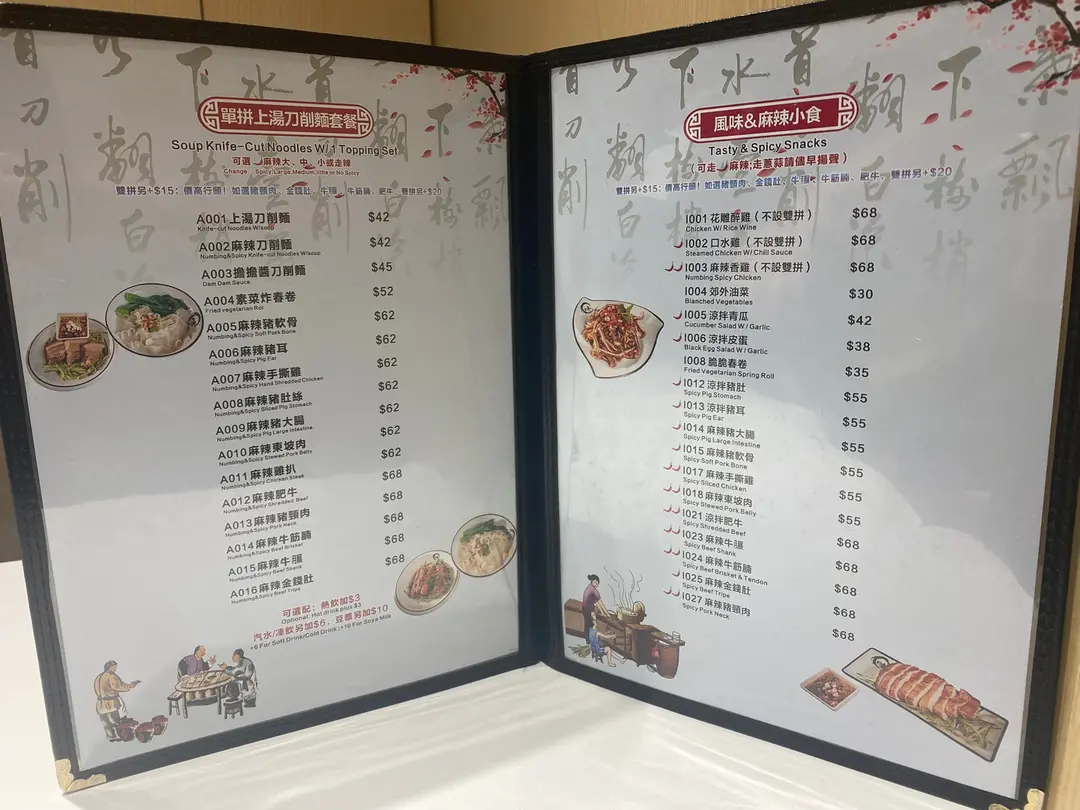 單拼上湯刀削麵套餐
Soup Knife-Cut Noodles W/1 Topping Set
可選 麻辣大、中、小或走辣
Change Spicy:Large,Medium,little or No Spicy
雙拼另+$15; 價高行頭! 如選豬頸肉、金錢肚、牛𦟌、牛筋腩、肥牛, 雙拼另+$20
A001 上湯刀削麵 $42
Knife-cut Noodles W/soup
A002 麻辣刀削麵 $42
Numbing&Spicy Knife-cut Noodles W/soup
A003 擔擔醬刀削麵 $45
Dam Dam Sauce
A004 素菜炸春卷 $52
Fried vegetarian Rol
A005 麻辣豬軟骨 $62
Numbing&Spicy Soft Pork Bone
A006 麻辣豬耳 $62
Numbing&Spicy Pig Ear
A007 麻辣手撕雞 $62
Numbing&Spicy Hand Shredded Chicken
A008 麻辣豬肚絲 $62
Numbing&Spicy Sliced Pig Stomach
A009 麻辣豬大腸 $62
Numbing&Spicy Pig Large Intestine
A010 麻辣東坡肉 $62
Numbing&Spicy Stewed Pork Belly
A011 麻辣雞扒 $62
Numbing&Spicy Chicken Steak
A012 麻辣肥牛 $68
Numbing&Spicy Shredded Beef
A013 麻辣豬頸肉 $68
Numbing&Spicy Pork Neck
A014 麻辣牛筋腩 $68
Numbing&Spicy Beef Brisket
A015 麻辣牛𦟌 $68
Numbing&Spicy Beef Shank
A016 麻辣金錢肚 $68
Numbing&Spicy Beef Tripe
可選配: 熱飲加$3
Optional: Hot drink plus $3
汽水/凍飲另加$6, 豆漿另加$10
+6 For Soft Drink/Cold Drink ;+10 For Soya Milk
風味&麻辣小食
Tasty & Spicy Snacks
(可走 麻辣;走蔥蒜請儘早揚聲)
雙拼另+$15; 價高行頭! 如選豬頸肉、金錢肚、牛𦟌、牛筋腩、肥牛, 雙拼另+$20
I001 花雕醉雞(不設雙拼) $68
Chicken W/ Rice Wine
I002 口水雞(不設雙拼) $68
Steamed Chicken W/ Chill Sauce
I003 麻辣香雞(不設雙拼) $68
Numbing Spicy Chicken
I004 郊外油菜 $30
Blanched Vegetables
I005 涼拌青瓜 $42
Cucumber Salad W/ Garlic
I006 涼拌皮蛋 $38
Black Egg Salad W/ Garlic
I008 脆脆春卷 $35
Fried Vegetarian Spring Roll
I012 涼拌豬肚 $55
Spicy Pig Stomach
I013 涼拌豬耳 $55
Spicy Pig Ear
I014 麻辣豬大腸 $55
Spicy Pig Large Intestine
I015 麻辣豬軟骨 $55
Spicy Soft Pork Bone
I017 麻辣手撕雞 $55
Spicy Sliced Chicken
I018 麻辣東坡肉 $55
Spicy Stewed Pork Belly
I021 涼拌肥牛 $68
Spicy Shredded Beef
I023 麻辣牛𦟌 $68
Spicy Beef Shank
I024 麻辣牛筋腩 $68
Spicy Beef Brisket & Tendon
I025 麻辣金錢肚 $68
Spicy Beef Tripe
I027 麻辣豬頸肉 $68
Spicy Pork Neck